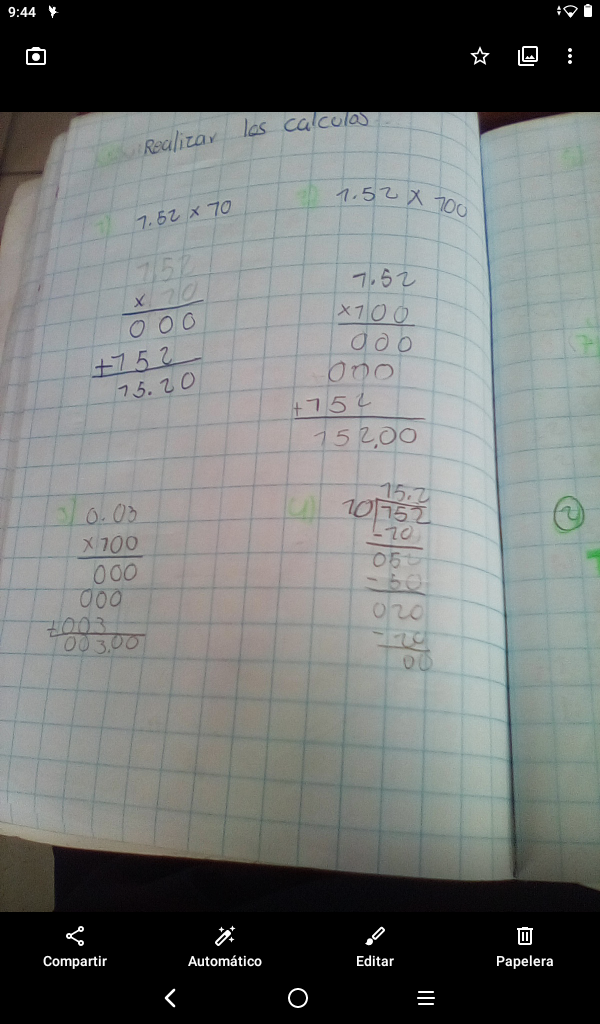 9:44
Realizar los calculos
1) 1.52 x 10
152
x 10
000
+152
15.20
2) 1.52 x 100
1.52
x100
000
000
+152
152.00
3) 0.03
x100
000
000
+003
003.00
4) 15.2
10 152
-10
052
-50
020
-20
00
7
2
Compartir
Automático
Editar
Papelera